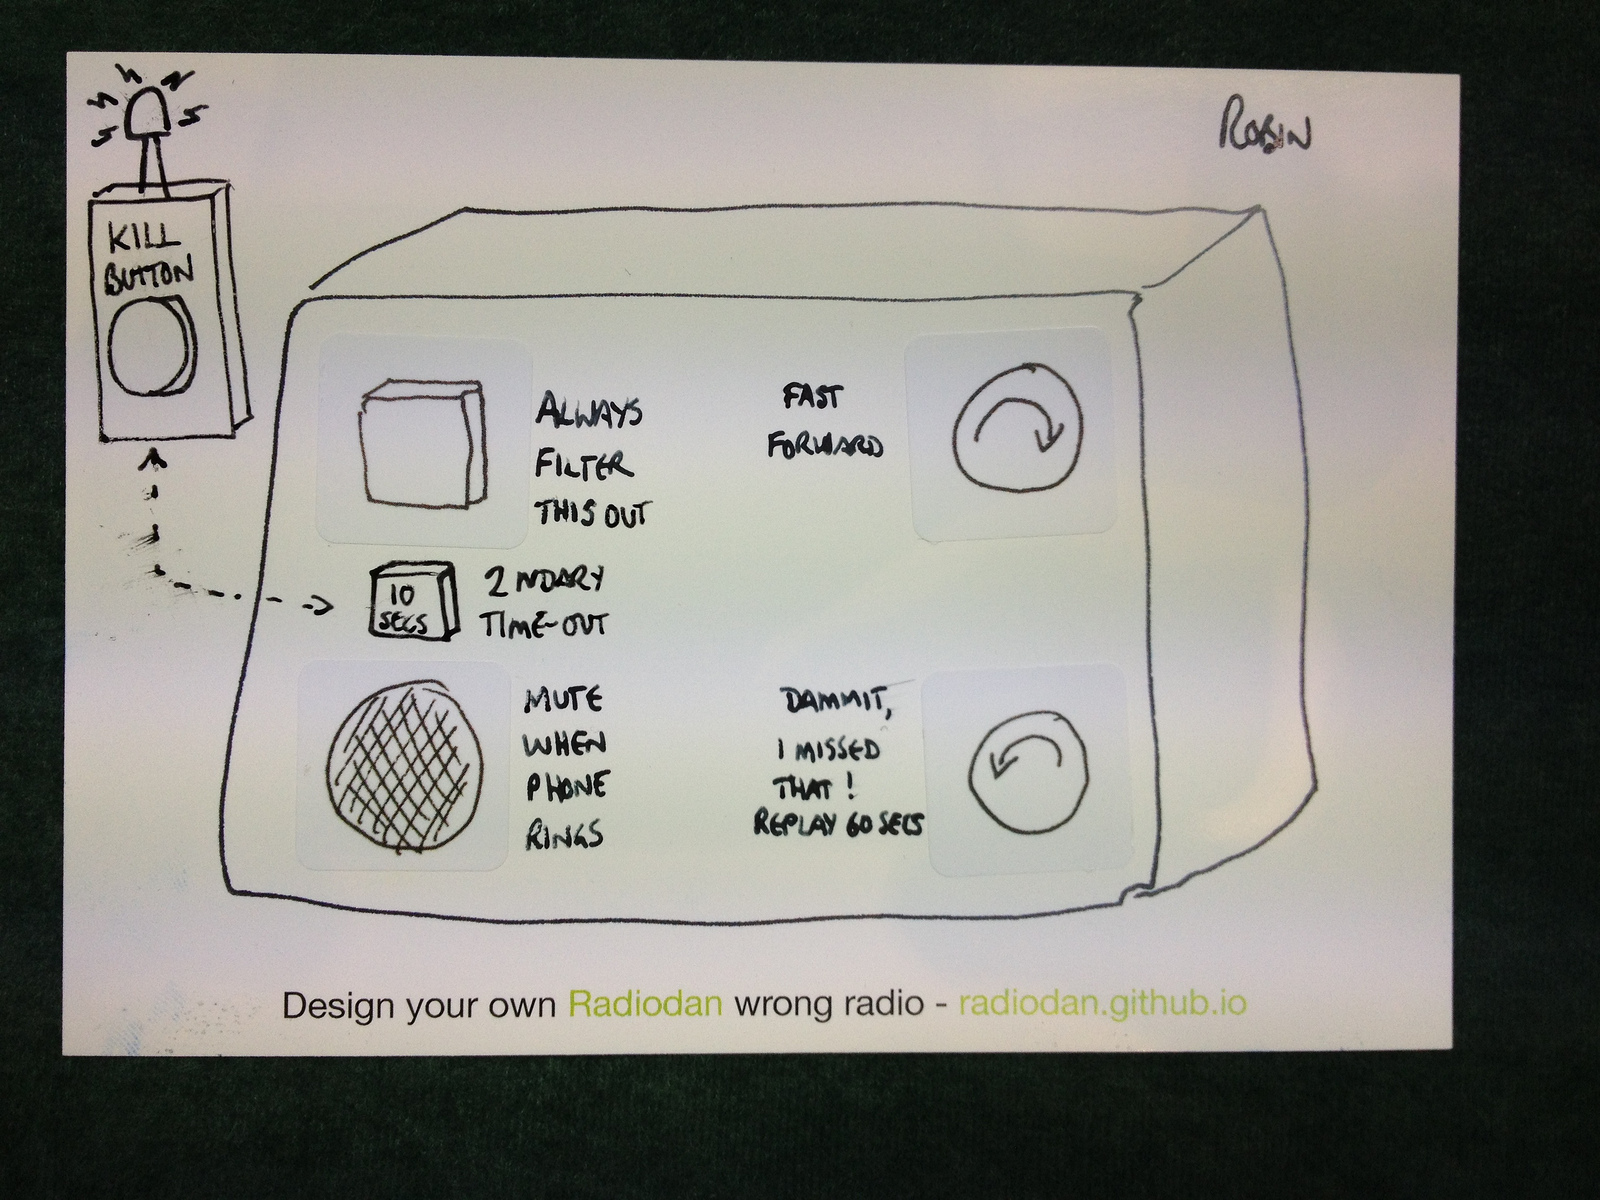 ROBIN
KILL
BUTTON
ALWAYS
FILTER
THIS OUT
FAST
FORWARD
10
SECS
2NDARY
TIME-OUT
MUTE
WHEN
PHONE
RINGS
DAMMIT,
I MISSED
THAT!
REPLAY 60 SECS
Design your own Radiodan wrong radio - radiodan.github.io